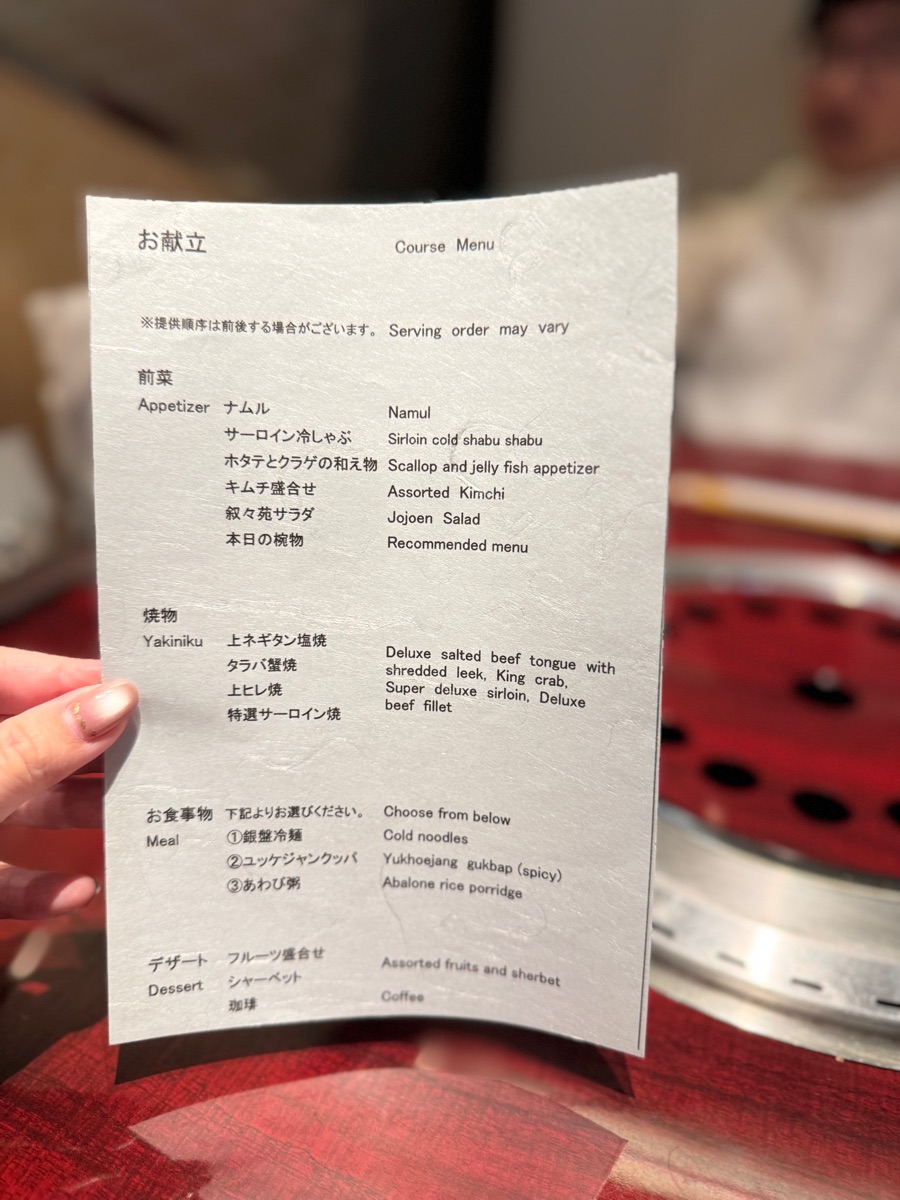 お献立 Course Menu
※提供順序は前後する場合がございます。 Serving order may vary
前菜
Appetizer ナムル Namul
サーロイン冷しゃぶ Sirloin cold shabu shabu
ホタテとクラゲの和え物 Scallop and jelly fish appetizer
キムチ盛合せ Assorted Kimchi
叙々苑サラダ Jojoen Salad
本日の椀物 Recommended menu
焼物
Yakiniku 上ネギタン塩焼
タラバ蟹焼
上ヒレ焼
特選サーロイン焼
Deluxe salted beef tongue with
shredded leek, King crab,
Super deluxe sirloin, Deluxe
beef fillet
お食事物 下記よりお選びください。 Choose from below
Meal ①銀盤冷麺 Cold noodles
②ユッケジャンクッパ Yukhoejang gukbap (spicy)
③あわび粥 Abalone rice porridge
デザート フルーツ盛合せ
Dessert シャーベット
Assorted fruits and sherbet
珈琲 Coffee